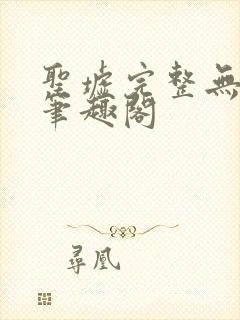 聖墟完整無
筆趣閣
尋凰